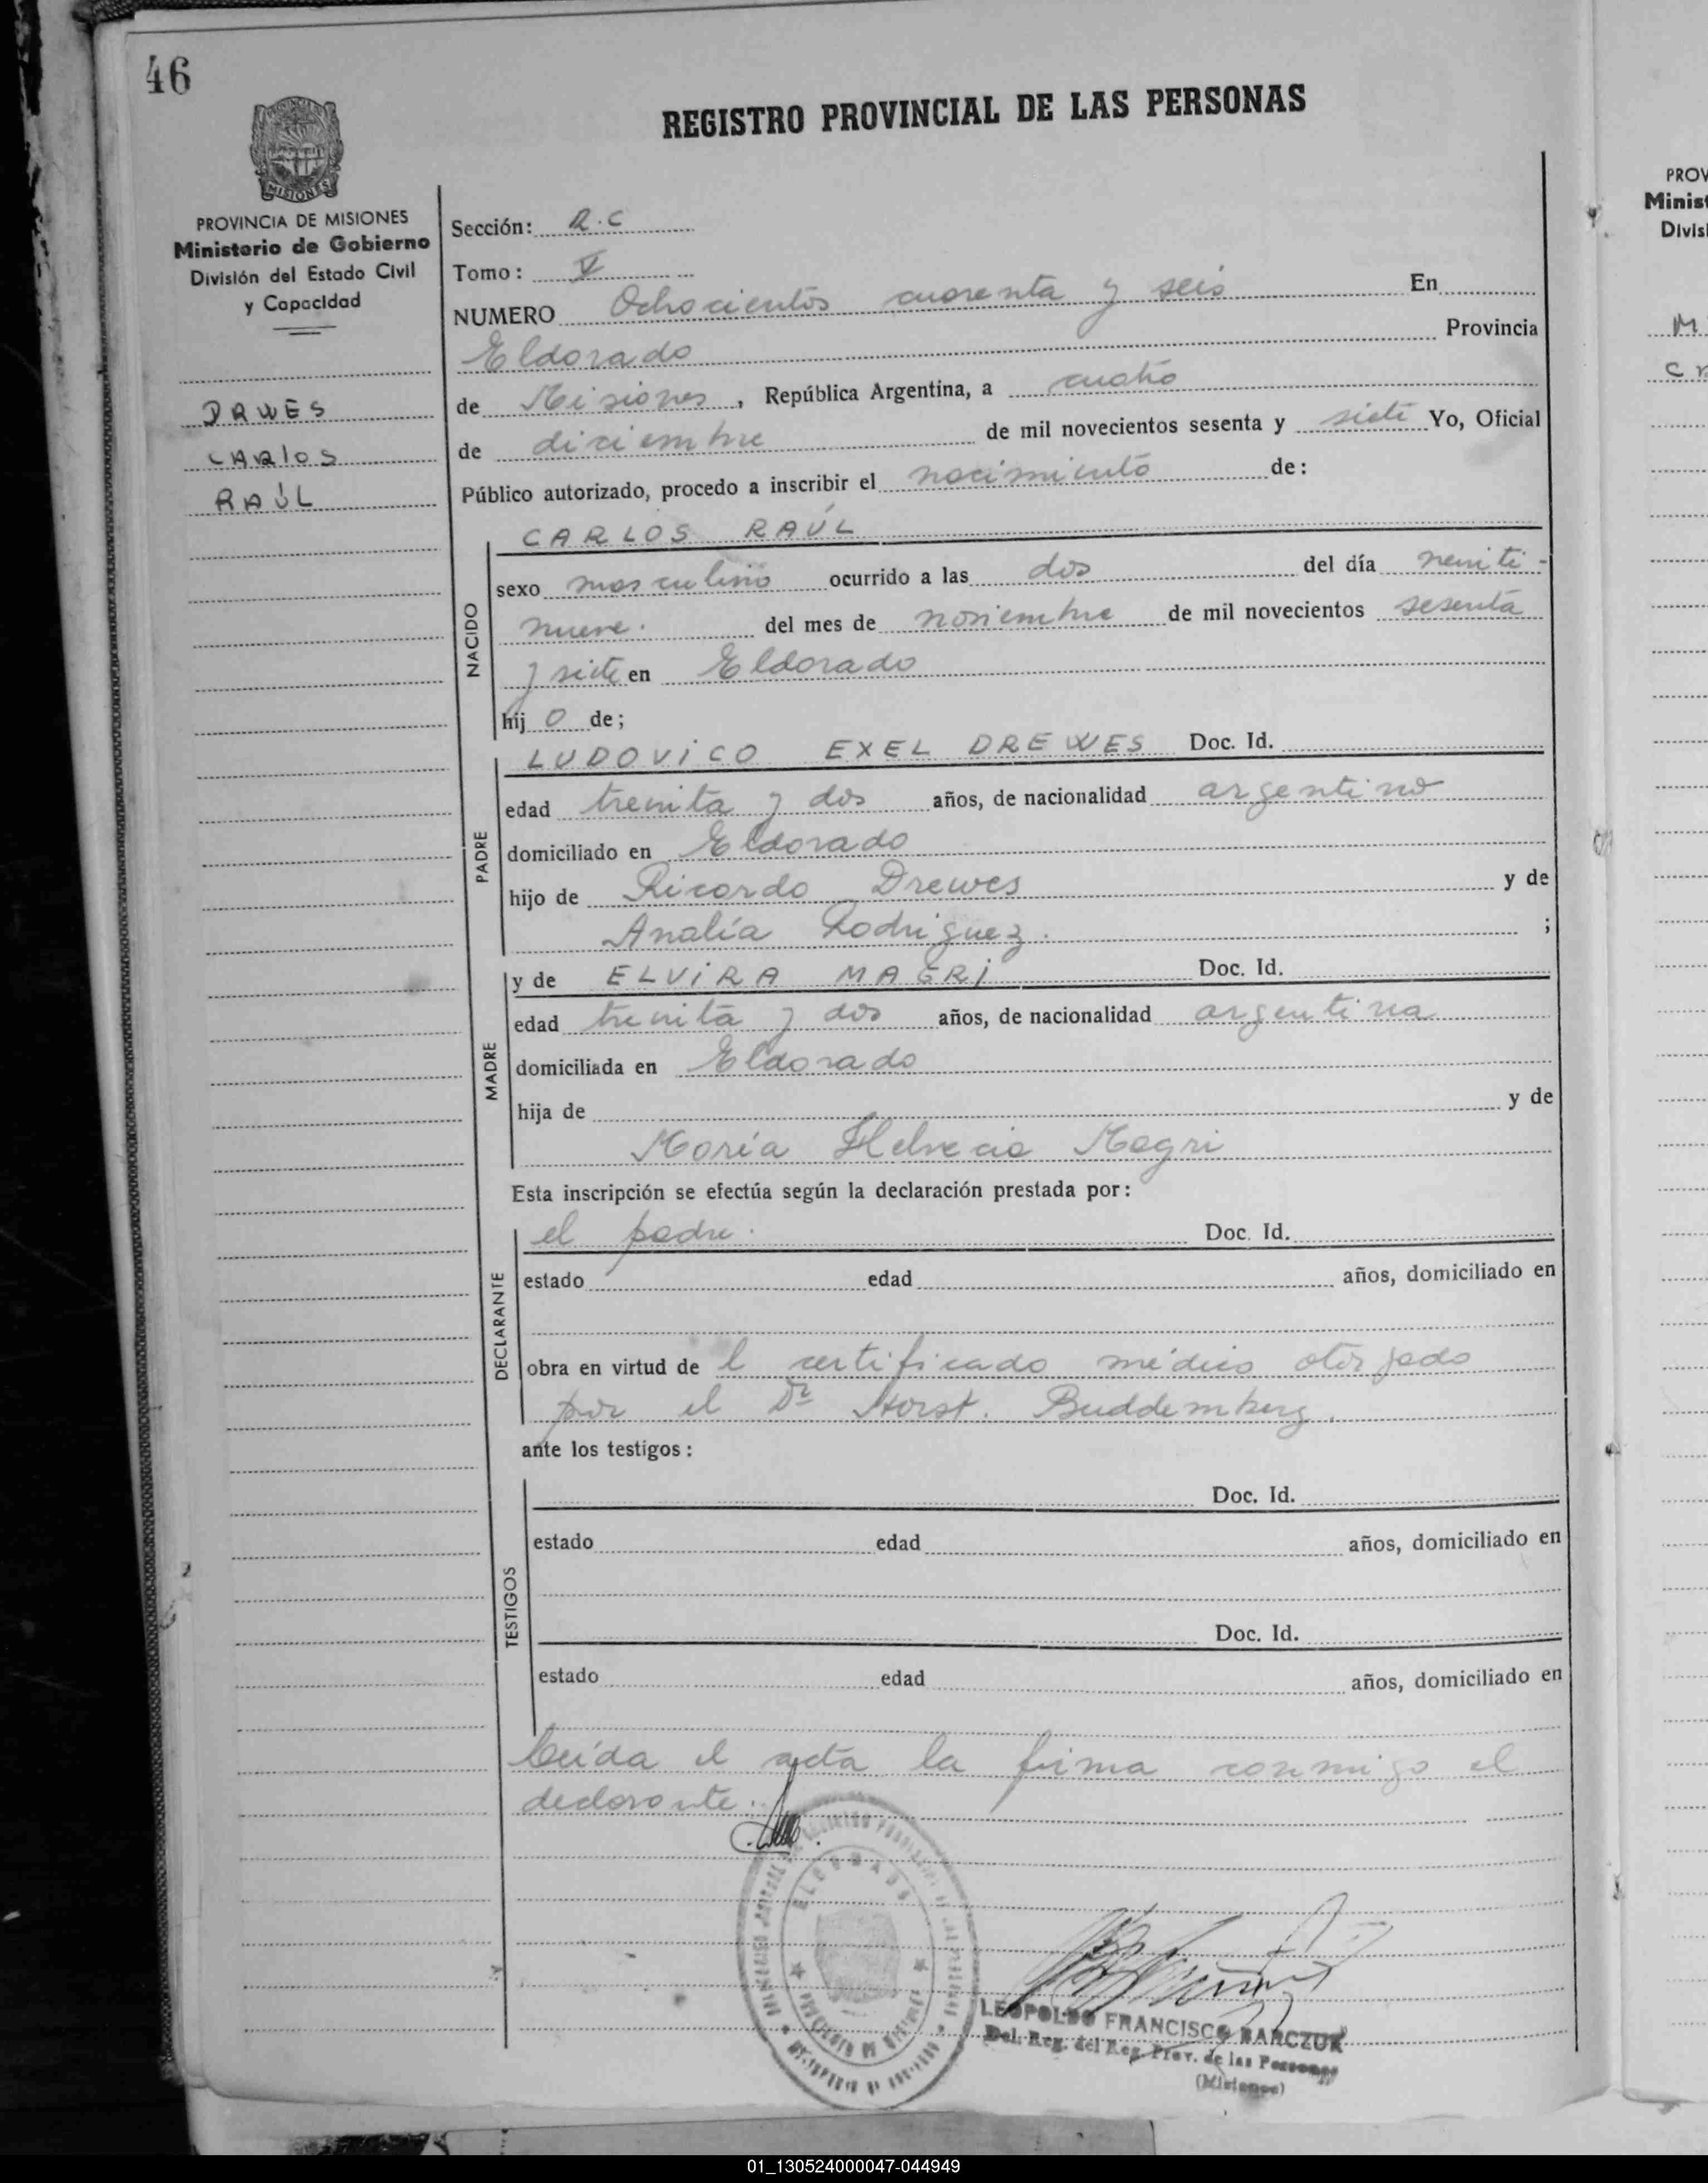 46
REGISTRO PROVINCIAL DE LAS PERSONAS
MISIONES
PROVINCIA DE MISIONES
Ministerio de Gobierno
División del Estado Civil
y Capacidad
DRWES
CARlOS
RAÚL
Sección: R.C
Tomo: V
NUMERO Ochocientos cuarenta y seis En
Eldorado Provincia
de Misiones, República Argentina, a cuatro
de diciembre de mil novecientos sesenta y siete Yo, Oficial
Público autorizado, procedo a inscribir el nacimiento de:
NACIDO
CARLOS RAÚL
sexo masculino ocurrido a las dos del día veinti-
nueve. del mes de noviembre de mil novecientos sesenta
y siete en Eldorado
hij o de;
PADRE
LUDOVICO EXEL DREWES Doc. Id.
edad treinta y dos años, de nacionalidad argentino
domiciliado en Eldorado
hijo de Ricardo Drewes y de
Analía Rodriguez. ;
MADRE
y de ELVIRA MAGRI Doc. Id.
edad treinta y dos años, de nacionalidad argentina
domiciliada en Eldorado
hija de y de
María Helvecia Magri
Esta inscripción se efectúa según la declaración prestada por:
DECLARANTE
el padre. Doc. Id.
estado edad años, domiciliado en
obra en virtud de l certificado médico otorgado
por el Dr Horst. Buddemberg.
ante los testigos:
TESTIGOS
Doc. Id.
estado edad años, domiciliado en
Doc. Id.
estado edad años, domiciliado en
Leída el acta la firma conmigo el
declarante.
ELDORADO
LEOPOLDO FRANCISCO BARCZUK
Del. Reg. del Reg. Prov. de las Personas
(Misiones)
PROV
Minist
Divis
M
01_130524000047-044949